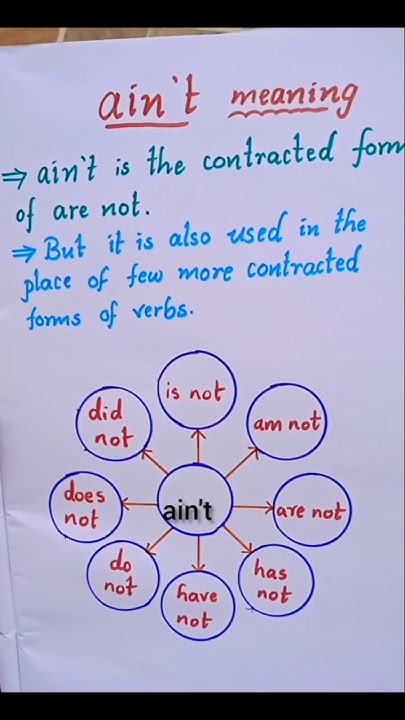 ain't meaning
⇒ ain't is the contracted form
of are not.
⇒ But it is also used in the
place of few more contracted
forms of verbs.
is not
did
not
am not
does
not
ain't
are not
do
not
has
not
have
not